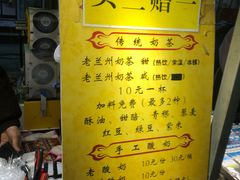 买二赠一
传统奶茶
老兰州奶茶 甜 (热饮/常温/冰镇)
老兰州奶茶 咸 (热饮/
10元一杯
加料免费(最多2种)
酥油、甜醅、青稞、燕麦
红豆、绿豆、紫米
手工酸奶
老酸奶 10元/份 30元/桶
酸奶 10元/